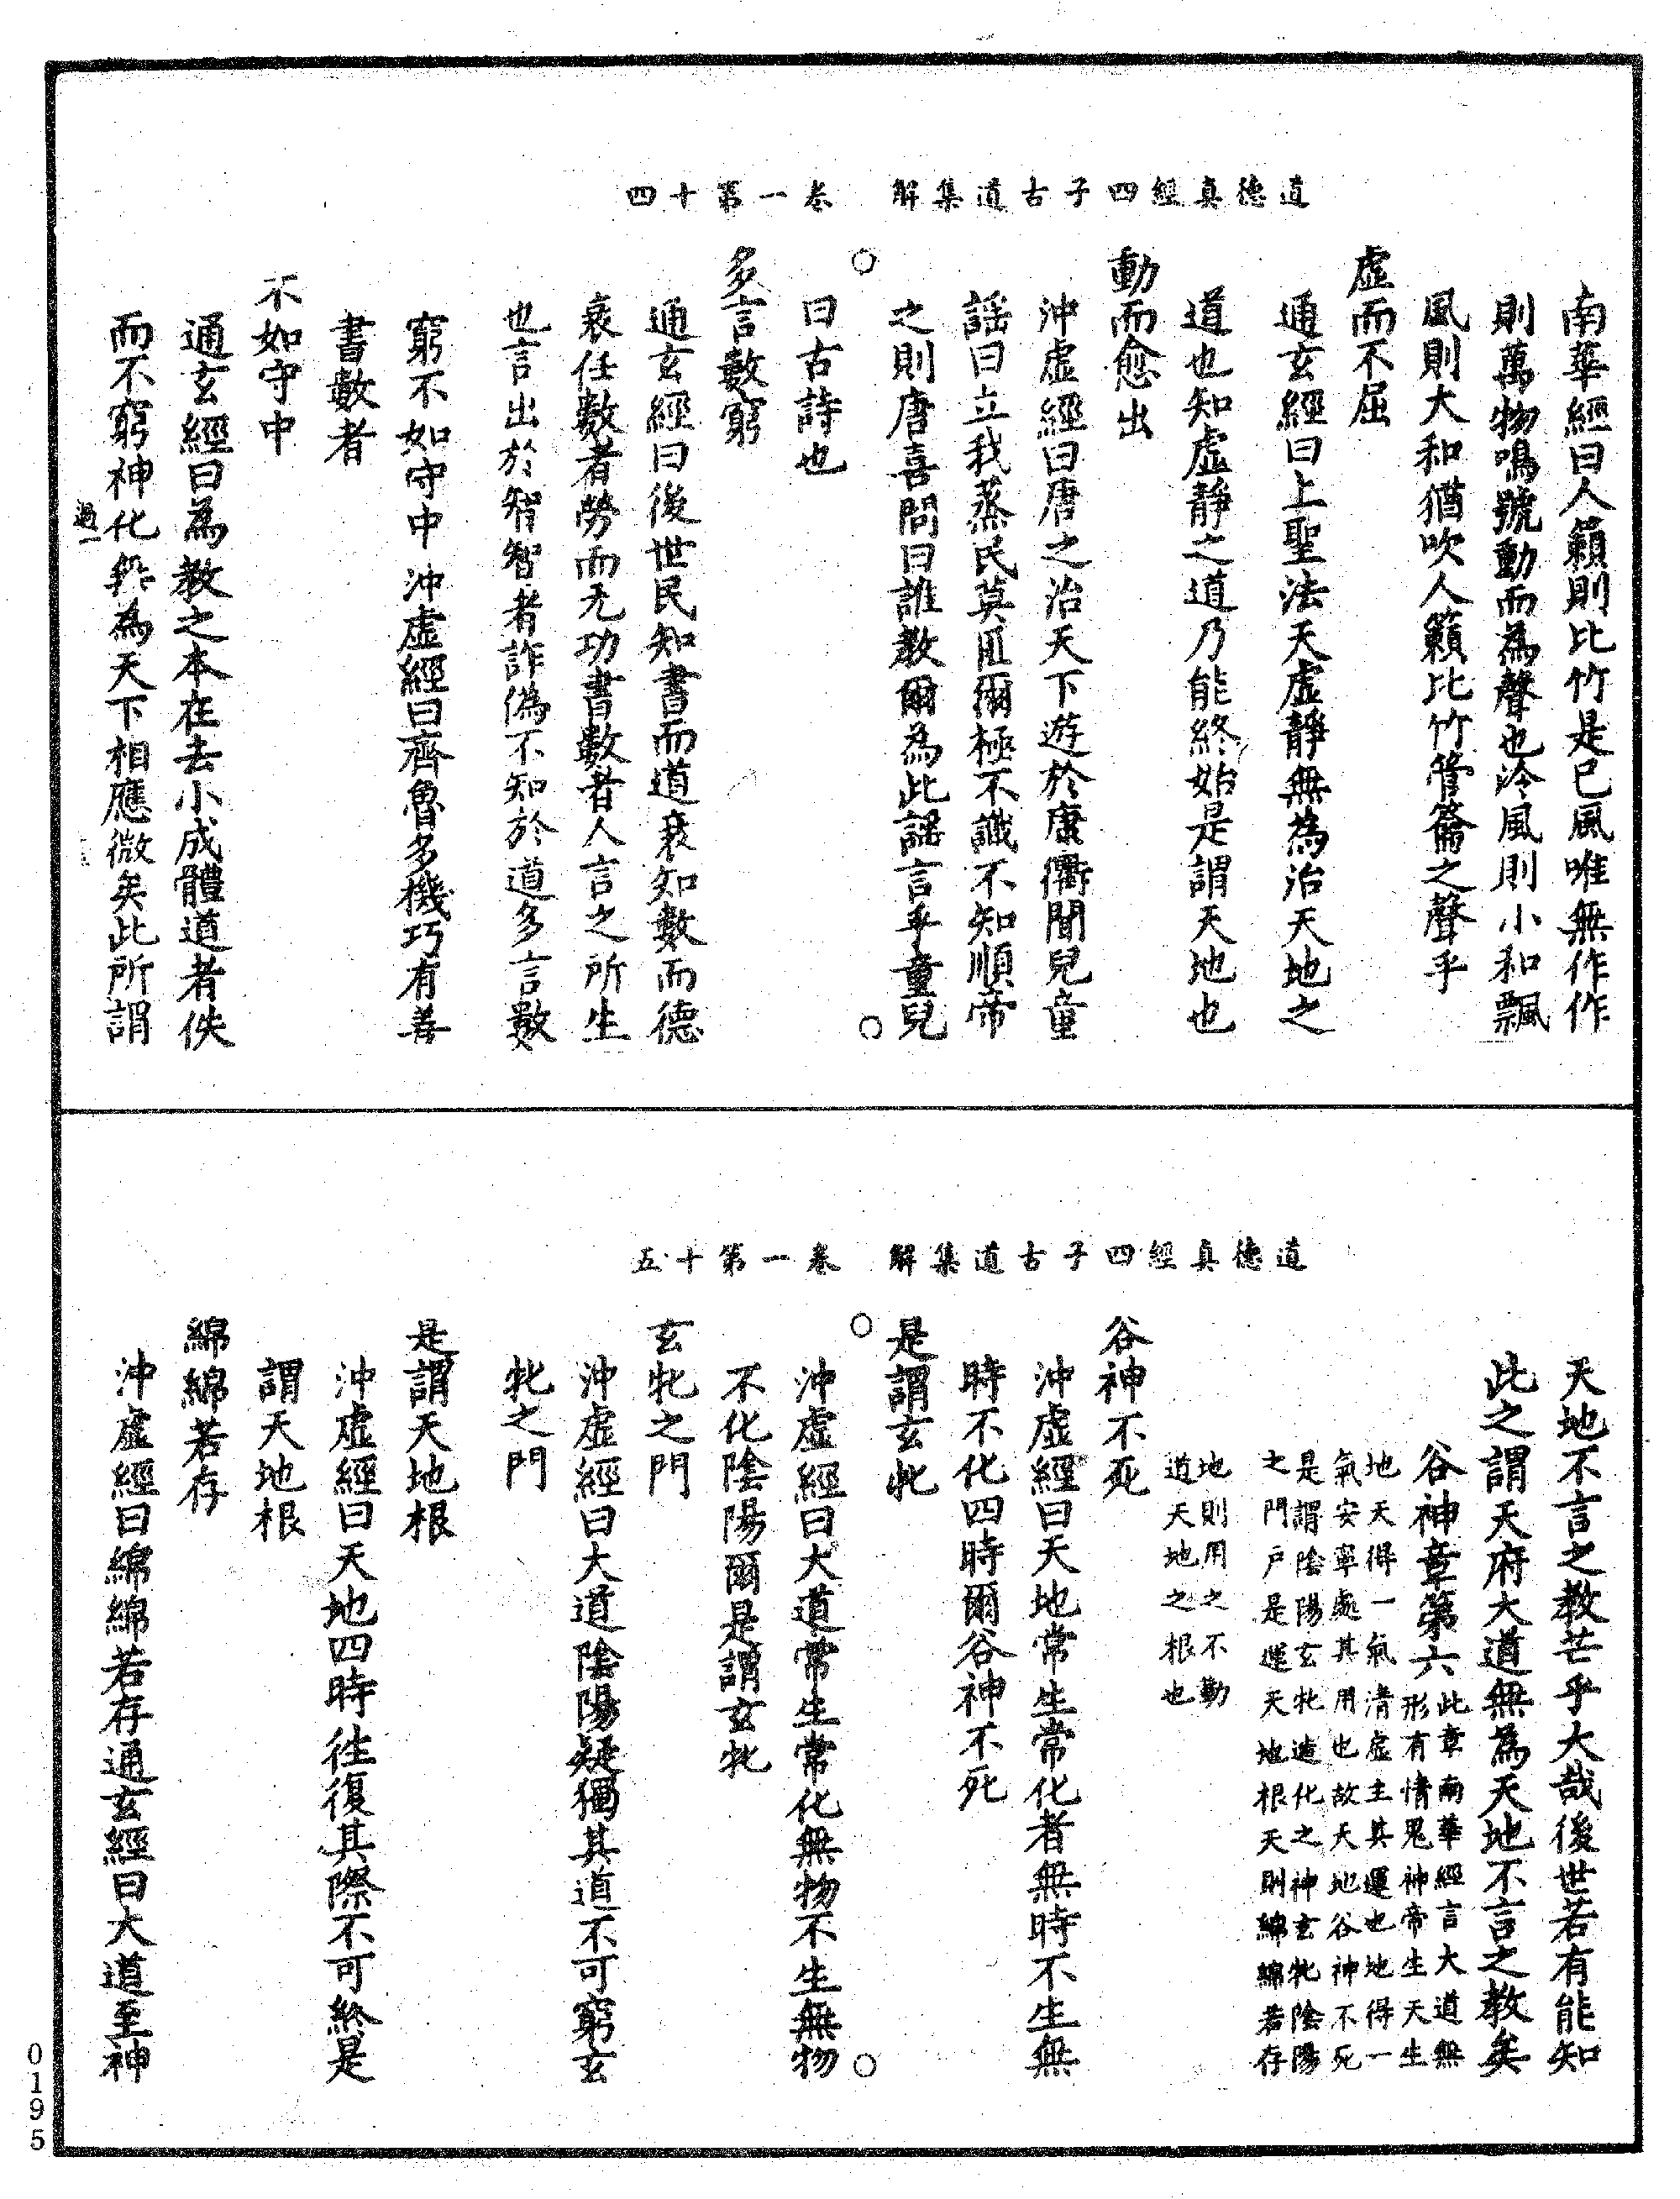 道德真經四子古道集解 卷一第十四
南華經曰人籟則比竹是已風唯無作作
則萬物鳴號動而為聲也泠風則小和飄
風則大和猶吹人籟比竹管籥之聲乎
虛而不屈
通玄經曰上聖法天虛靜無為治天地之
道也知虛靜之道乃能終始是謂天地也
動而愈出
沖虛經曰唐之治天下遊於康衢聞兒童
謠曰立我蒸民莫匪爾極不識不知順帝
之則唐喜問曰誰教爾為此謠言乎童兒
曰古詩也
多言數窮
通玄經曰後世民知書而道衰知數而德
衰任數者勞而无功書數者人言之所生
也言出於智智者詐偽不知於道多言數
窮不如守中 沖虛經曰齊魯多機巧有善
書數者
不如守中
通玄經曰為教之本在去小成體道者佚
而不窮神化
為天下相應微矣此所謂
過一
道德真經四子古道集解 卷一第十五
天地不言之教芒乎大哉後世若有能知
此之謂天府大道無為天地不言之教矣
谷神章第六
此章南華經言大道無
形有情鬼神帝生天生
地天得一氣清虛主其運也地得一
氣安寧處其用也故天地谷神不死
是謂陰陽玄牝造化之神玄牝陰陽
之門戶是運天地根天則綿綿若存
地則用之不勤
道天地之根也
谷神不死
沖虛經曰天地常生常化者無時不生無
時不化四時爾谷神不死
是謂玄牝
沖虛經曰大道常生常化無物不生無物
不化陰陽爾是謂玄牝
玄牝之門
沖虛經曰大道陰陽疑獨其道不可窮玄
牝之門
是謂天地根
沖虛經曰天地四時往復其際不可終是
謂天地根
綿綿若存
沖虛經曰綿綿若存通玄經曰大道至神
0195